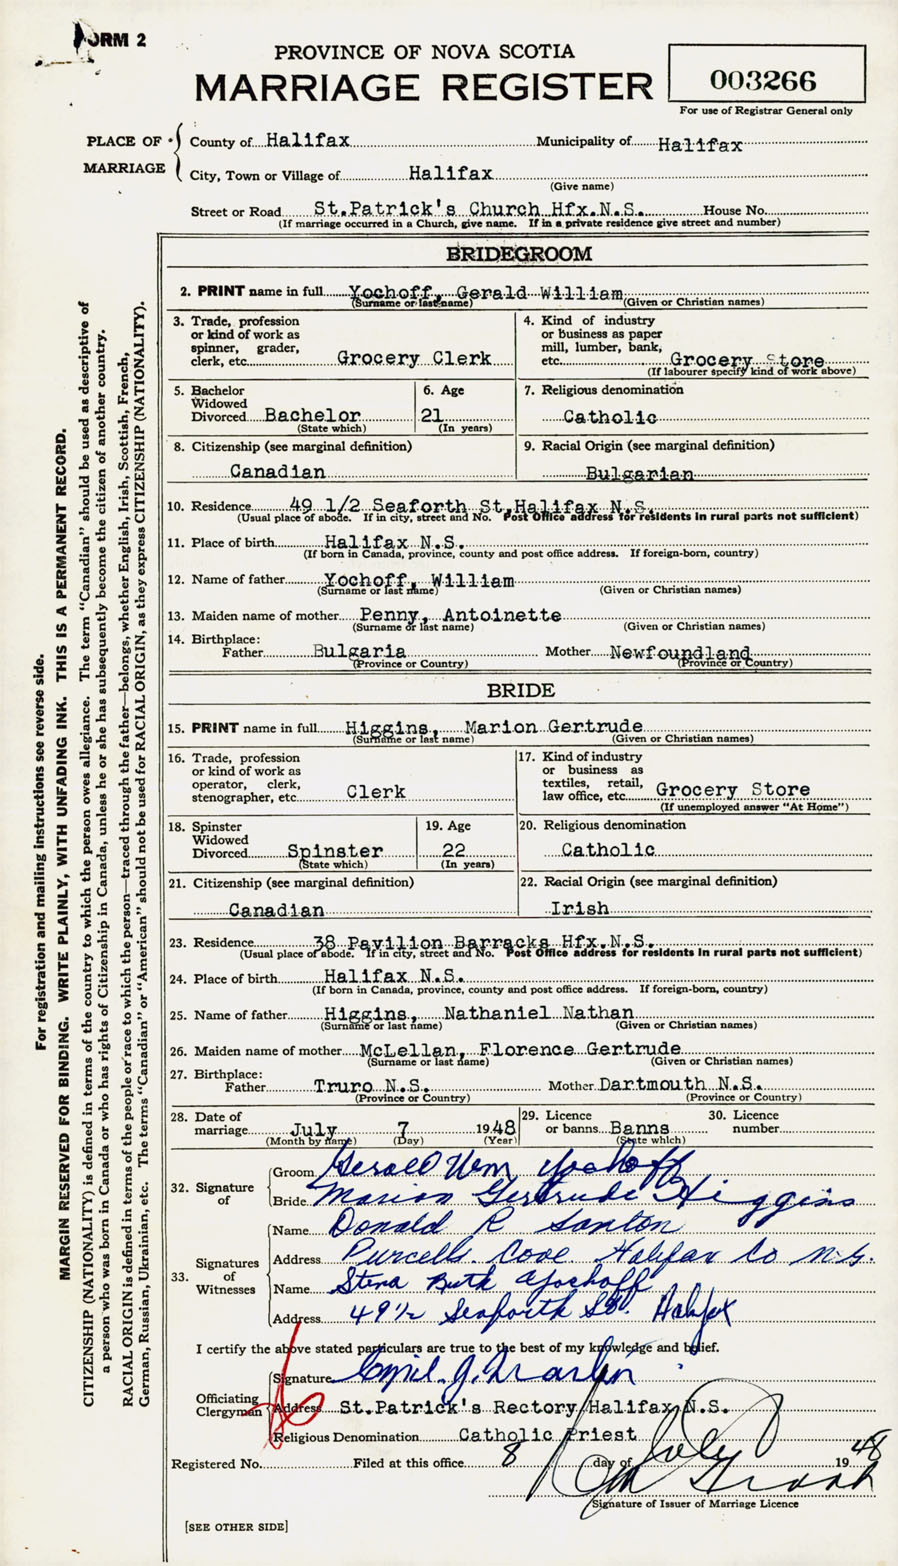 FORM 2
PROVINCE OF NOVA SCOTIA
MARRIAGE REGISTER
003266
For use of Registrar General only
PLACE OF MARRIAGE
County of Halifax Municipality of Halifax
City, Town or Village of Halifax
(Give name)
Street or Road St.Patrick's Church Hfx.N.S. House No.
(If marriage occurred in a Church, give name. If in a private residence give street and number)
BRIDEGROOM
2. PRINT name in full Yochoff, Gerald William
(Surname or last name) (Given or Christian names)
3. Trade, profession
or kind of work as
spinner, grader,
clerk, etc. Grocery Clerk
4. Kind of industry
or business as paper
mill, lumber, bank,
etc. Grocery Store
(If labourer specify kind of work above)
5. Bachelor
Widowed
Divorced Bachelor
(State which)
6. Age
21
(In years)
7. Religious denomination
Catholic
8. Citizenship (see marginal definition)
Canadian
9. Racial Origin (see marginal definition)
Bulgarian
10. Residence 49 1/2 Seaforth St,Halifax N.S.
(Usual place of abode. If in city, street and No. Post Office address for residents in rural parts not sufficient)
11. Place of birth Halifax N.S.
(If born in Canada, province, county and post office address. If foreign-born, country)
12. Name of father Yochoff, William
(Surname or last name) (Given or Christian names)
13. Maiden name of mother Penny, Antoinette
(Surname or last name) (Given or Christian names)
14. Birthplace:
Father Bulgaria Mother Newfoundland
(Province or Country) (Province or Country)
BRIDE
15. PRINT name in full Higgins, Marion Gertrude
(Surname or last name) (Given or Christian names)
16. Trade, profession
or kind of work as
operator, clerk,
stenographer, etc. Clerk
17. Kind of industry
or business as
textiles, retail,
law office, etc. Grocery Store
(If unemployed answer "At Home")
18. Spinster
Widowed
Divorced Spinster
(State which)
19. Age
22
(In years)
20. Religious denomination
Catholic
21. Citizenship (see marginal definition)
Canadian
22. Racial Origin (see marginal definition)
Irish
23. Residence 38 Pavilion Barracks Hfx.N.S.
(Usual place of abode. If in city, street and No. Post Office address for residents in rural parts not sufficient)
24. Place of birth Halifax N.S.
(If born in Canada, province, county and post office address. If foreign-born, country)
25. Name of father Higgins, Nathaniel Nathan
(Surname or last name) (Given or Christian names)
26. Maiden name of mother McLellan, Florence Gertrude
(Surname or last name) (Given or Christian names)
27. Birthplace:
Father Truro N.S. Mother Dartmouth N.S.
(Province or Country) (Province or Country)
28. Date of
marriage July 7 1948
(Month by name) (Day) (Year)
29. Licence
or banns Banns
(State which)
30. Licence
number
32. Signature of
Groom Gerald Wm Yochoff
Bride Marion Gertrude Higgins
33. Signatures of Witnesses
Name Donald R
Address Purcells Cove Halifax Co N.S.
Name Ruth Yochoff
Address 49 1/2 Seaforth St. Halifax
I certify the above stated particulars are true to the best of my knowledge and belief.
Officiating Clergyman
Signature Cyril J.
Address St.Patrick's Rectory Halifax N.S.
Religious Denomination Catholic Priest
Registered No. Filed at this office 8 day of July 1948
Signature of Issuer of Marriage Licence
[SEE OTHER SIDE]
For registration and mailing instructions see reverse side.
MARGIN RESERVED FOR BINDING. WRITE PLAINLY, WITH UNFADING INK. THIS IS A PERMANENT RECORD.
CITIZENSHIP (NATIONALITY) is defined in terms of the country to which the person owes allegiance. The term "Canadian" should be used as descriptive of
a person who was born in Canada or who has rights of Citizenship in Canada, unless he or she has subsequently become the citizen of another country.
RACIAL ORIGIN is defined in terms of the people or race to which the person—traced through the father—belongs, whether English, Irish, Scottish, French,
German, Russian, Ukrainian, etc. The terms "Canadian" or "American" should not be used for RACIAL ORIGIN, as they express CITIZENSHIP (NATIONALITY).